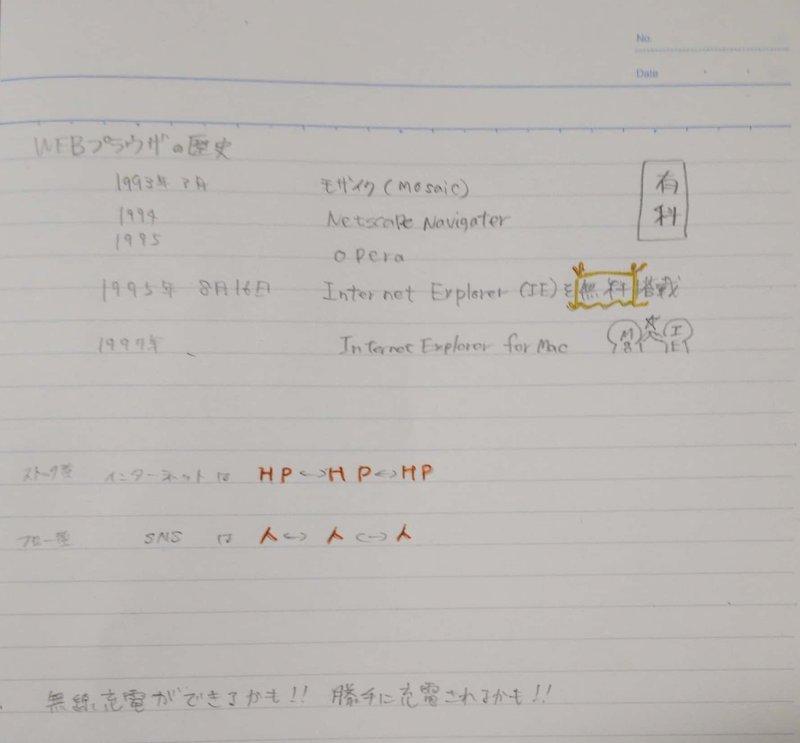 No.
Date
WEBブラウザの歴史
1993年 モザイク (Mosaic)
有料
1994 Netscape Navigater
1995 opera
1995年 8月16日 Internet Explorer (IE)を無料搭載
1997年 Internet Explorer for Mac
I E
ストック型 インターネットは HP↔HP↔HP
フロー型 SNS は 人↔人↔人
無線充電ができるかも!! 勝手に充電されるかも!!